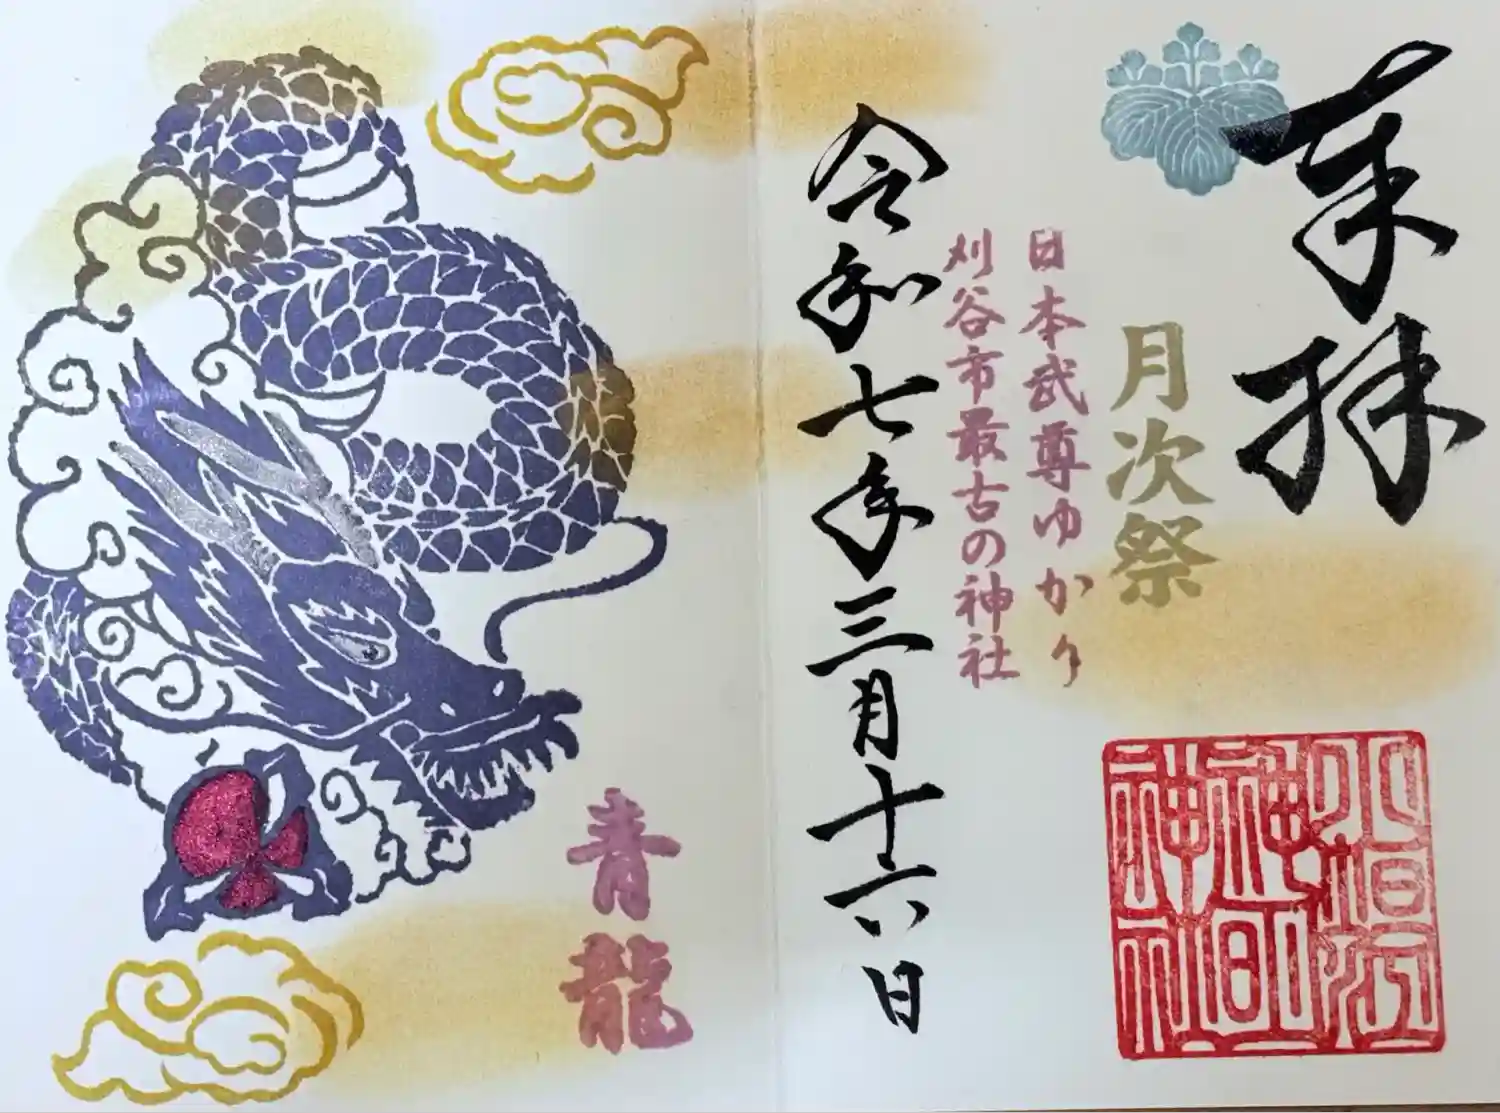 奉拝
月次祭
日本武尊ゆかり
刈谷市最古の神社
令和七年三月十六日
小垣江
神明
神社
青龍